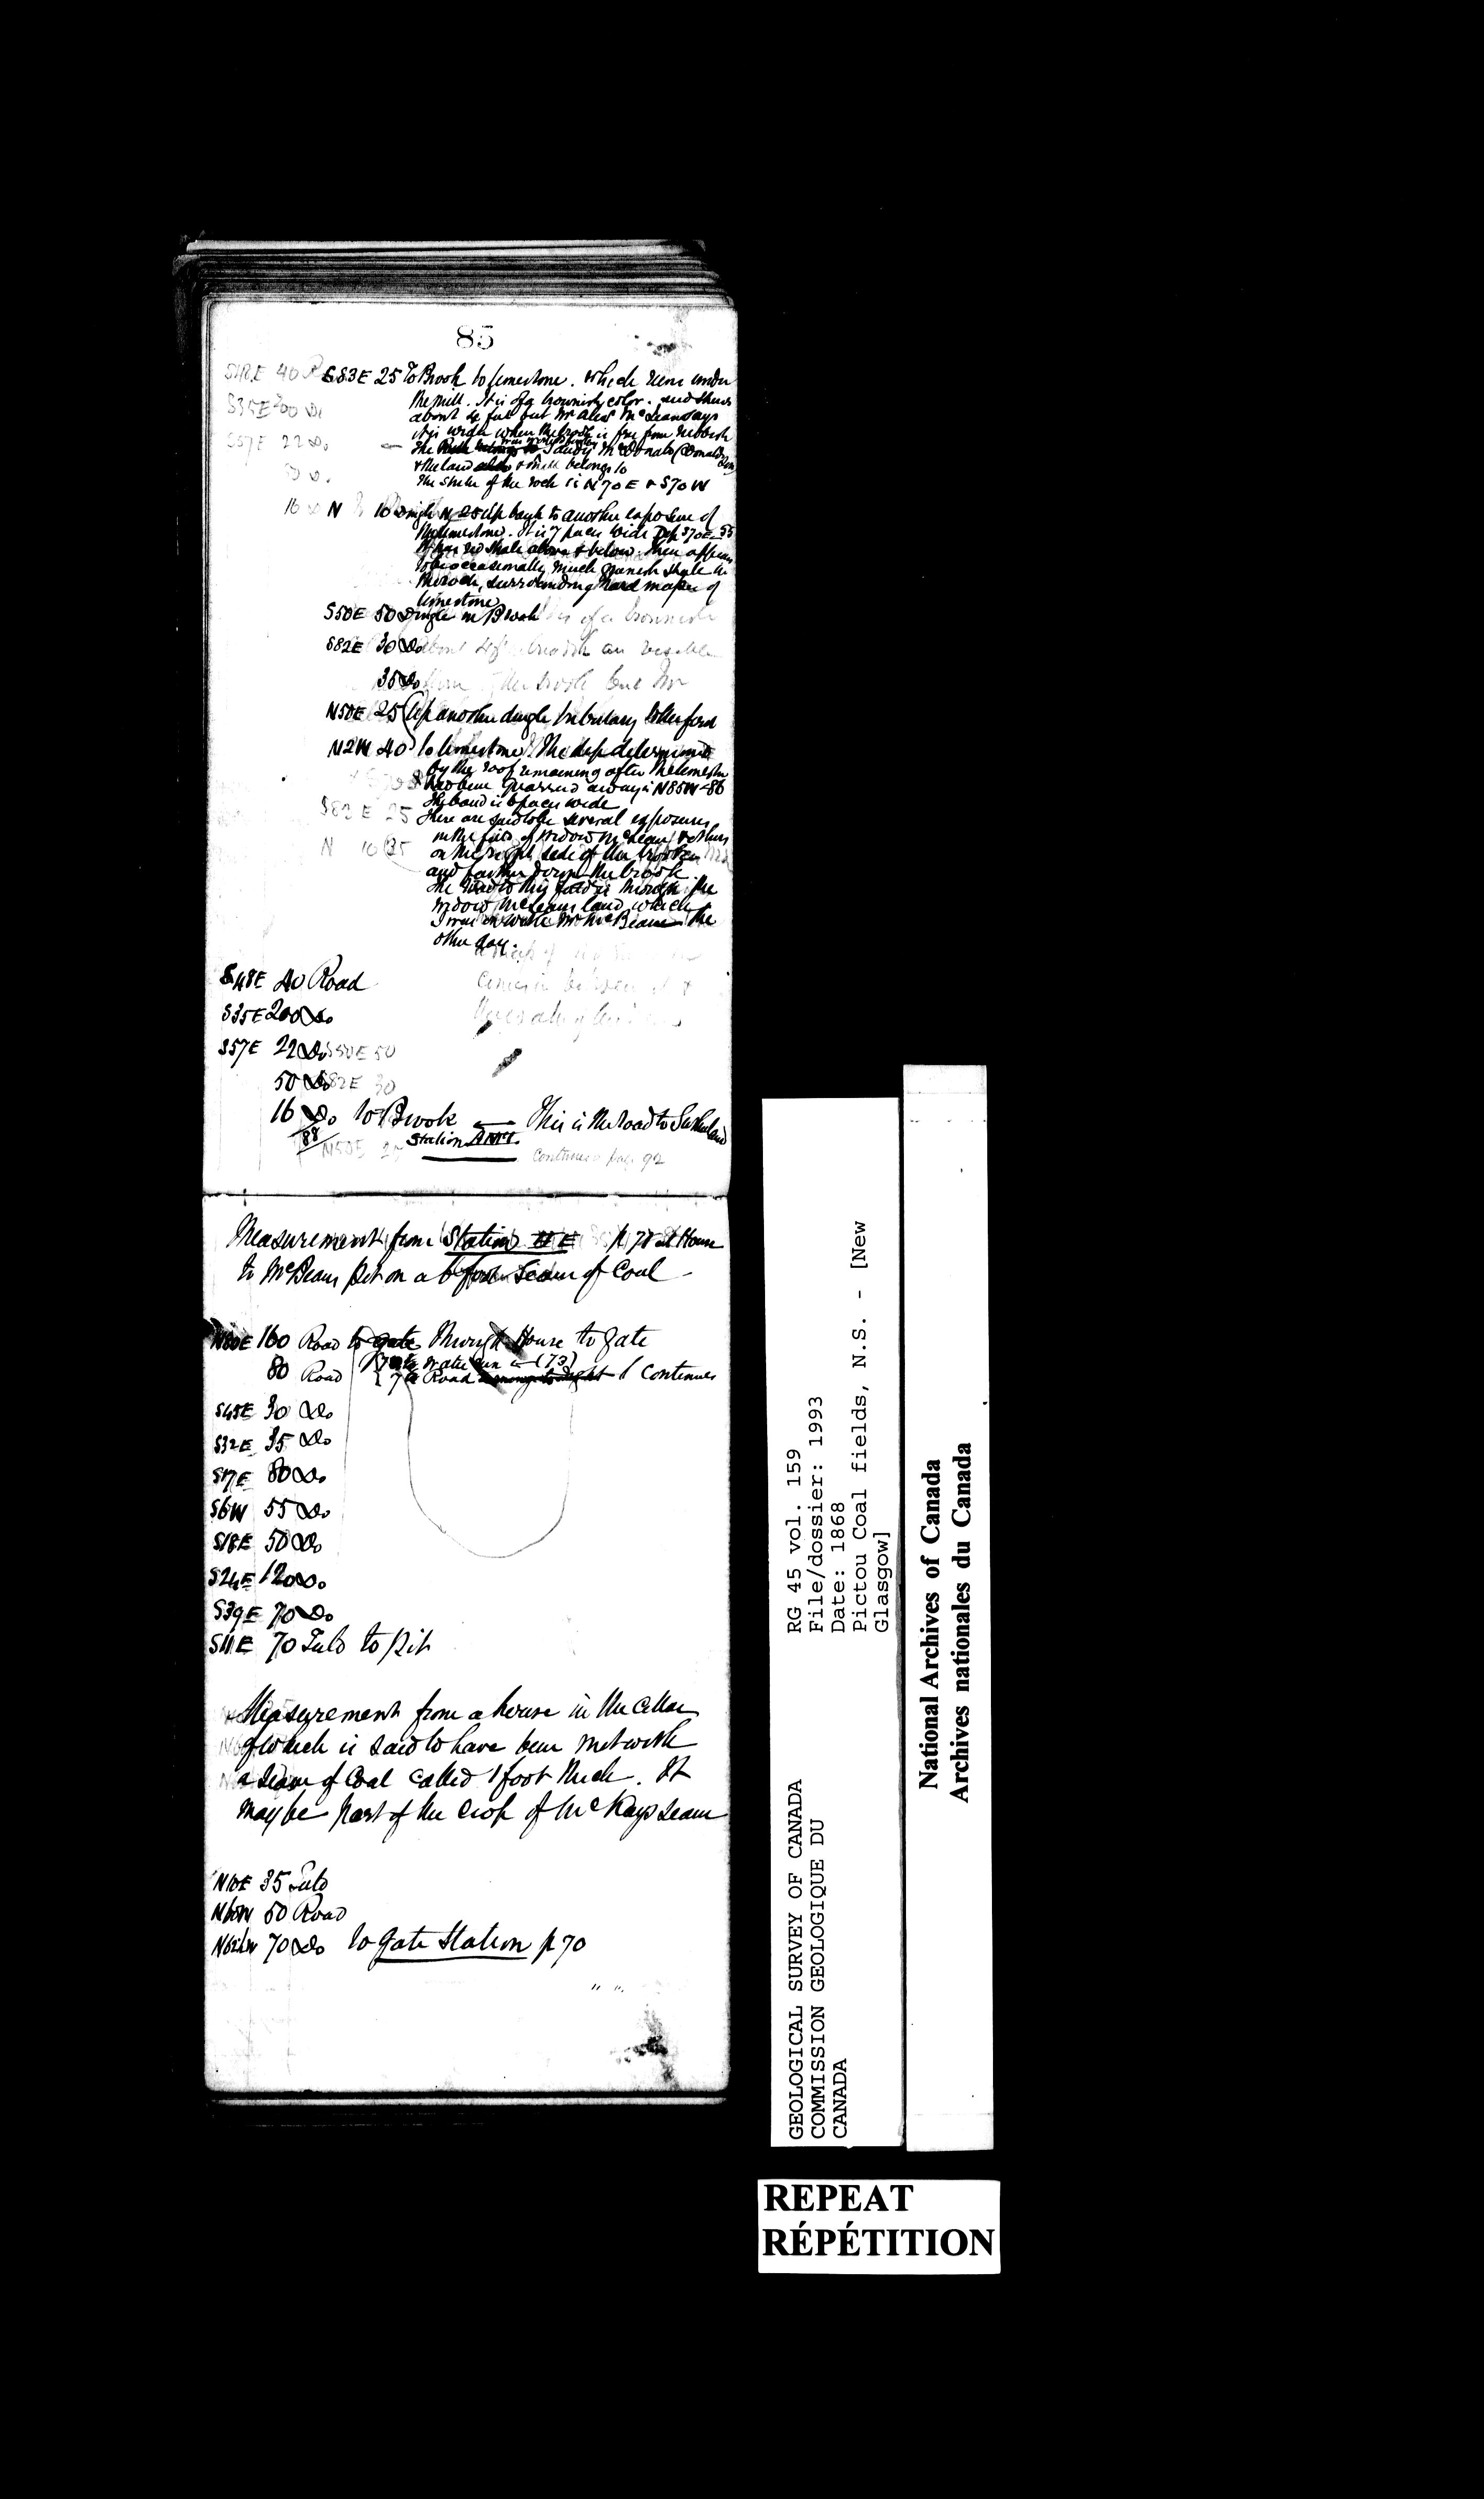 85
S83E 25 To Brook to limestone. Which runs under
the mill. It is of a brownish color. and shews
about 4 feet but Mr Alexr McLean says
it is wider when the brook is free from rubbish
The Sandy McDonald (Donald
& the land & mill belongs to
The strike of the rock is N70E & S70W
N 10 Dingle N 25 Up bank to another exposure of
the limestone. It is 7 paces wide Dip S70E 55
It has red shale above & below. There appears
to be occasionally much greenish shale in
the rock, surrounding hard masses of
limestone
S50E 50 Dingle in Brook
S82E 30 Do
35 Do
N50E 25 Up another dingle tributary to the ford
N2W 40 to limestone. The dip determined
by the roof remaining after the limestone
had been quarried away is N85W 86
The band is 6 paces wide
There are said to be several exposures
in the field of Widow McLean & others
on the right side of the brook
and farther down the brook.
The road to this field is through the
Widow McLeans land which
I was on with Mr McBean the
other day.
S48E 40 Road
S35E 200 Do
S57E 22 Do
50 Do
16 Do to Brook ← This is the road to Sutherland
88
Station
Continues page 92
Measurement from Station E p 78 at House
to McBeans Pit on a 6 foot Seam of Coal
N80E 160 Road to gate Through House to gate
80 Road water run (73)
Road Continues
S45E 30 Do
S32E 35 Do
S17E 80 Do
S6W 55 Do
S18E 50 Do
S24E 120 Do
S39E 70 Do
S11E 70 Field to Pit
Measurement from a house in the cellar
of which is said to have been met with
a seam of Coal called 1 foot thick. It
may be part of the crop of McKays seam
N10E 35 Field
N60W 50 Road
N62W 70 Do to gate Station p 70
GEOLOGICAL SURVEY OF CANADA
COMMISSION GEOLOGIQUE DU
CANADA
RG 45 vol. 159
File/dossier: 1993
Date: 1868
Pictou Coal fields, N.S. - [New
Glasgow]
National Archives of Canada
Archives nationales du Canada
REPEAT
RÉPÉTITION